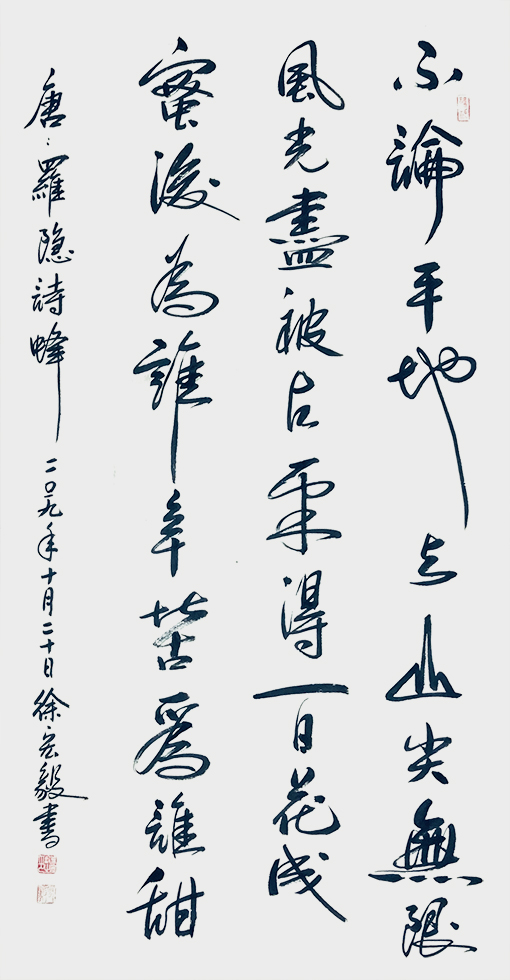 不論平地与山尖無限
風光盡被占采得百花成
蜜後為誰辛苦爲誰甜
唐:羅隐詩蜂 二〇一九年十月二十日徐宏毅書